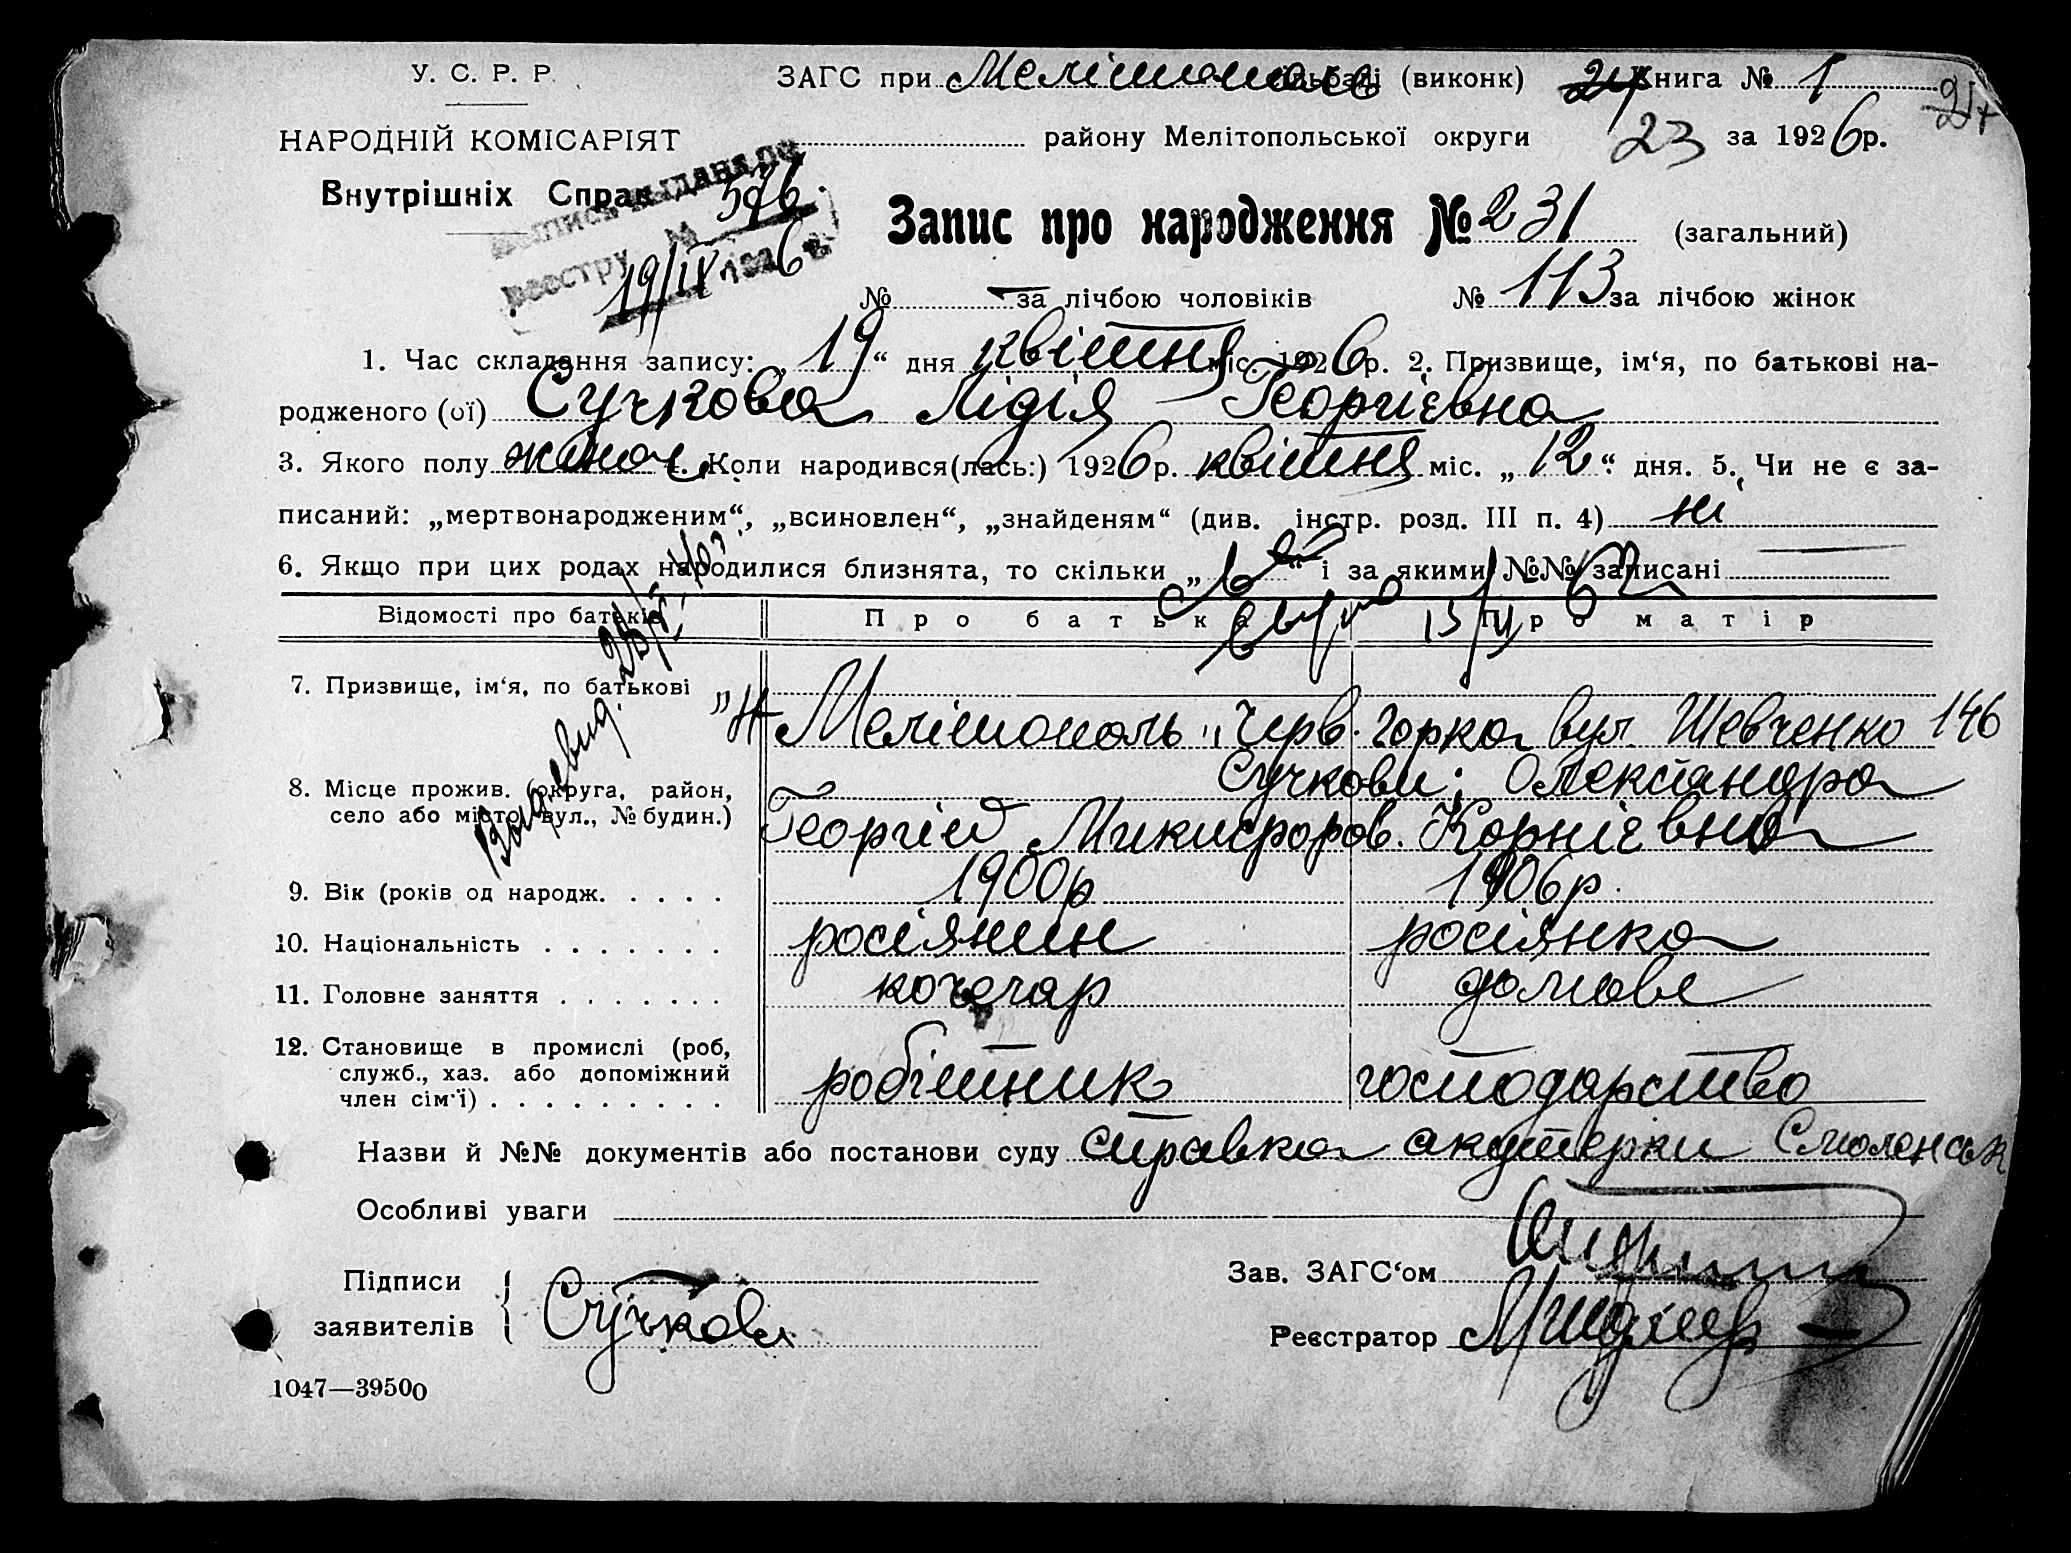 У. С. Р. Р.
ЗАГС при Мелітополь (виконк) Книга № 1
НАРОДНІЙ КОМІСАРІЯТ
району Мелітопольської округи 23 за 1926 р.
Внутрішніх Справ
реестру № 596
19/IV 1926 г.
Запис про народження № 231 (загальний)
№ — за лічбою чоловіків № 113 за лічбою жінок
1. Час складання запису: „19“ дня квітня міс. 1926 р. 2. Призвище, ім‘я, по батькові на-
родженого (ої) Сучкова Лідія Георгієвна
3. Якого полу жіноч. 4. Коли народився(лась:) 1926 р. квітня міс. „12“ дня. 5. Чи не є за-
писаний: „мертвонародженим“, „всиновлен“, „знайденям“ (див. інстр. розд. III п. 4) ні
6. Якщо при цих родах народилися близнята, то скільки „ “ і за якими №№ записані
Відомості про батьків Про батька Про матір
7. Призвище, ім‘я, по батькові
Мелітополь „Черв. горка вул. Шевченко 146
8. Місце прожив. (округа, район,
село або місто, вул., № будин.)
Сучкови: Олександра
Георгій Микифоров. Корніевна
9. Вік (років од народж. . . . . 1900р 1906р.
10. Національність . . . . . . . росіянин росіянка
11. Головне заняття . . . . . . . кочегар домове
12. Становище в промислі (роб,
служб., хаз. або допоміжний
член сім‘ї) . . . . . . . . . робітник господарство
Назви й №№ документів або постанови суду справка акушерки Смоленськ
Особливі уваги
Підписи
заявителів Сучкова
Зав. ЗАГС‘ом
Реєстратор
1047—39500